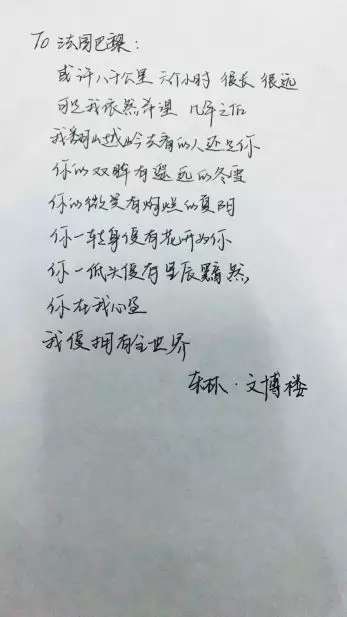 To 法国巴黎：
或许八千公里 六个小时 很长 很远
可是我依然希望 几年之后
我翻山越岭去看的人还是你
你的双眸有遥远的冬雪
你的微笑有灿烂的夏阳
你一转身便有花开为你
你一低头便有星辰黯然
你在我心里
我便拥有全世界
东林·文博楼